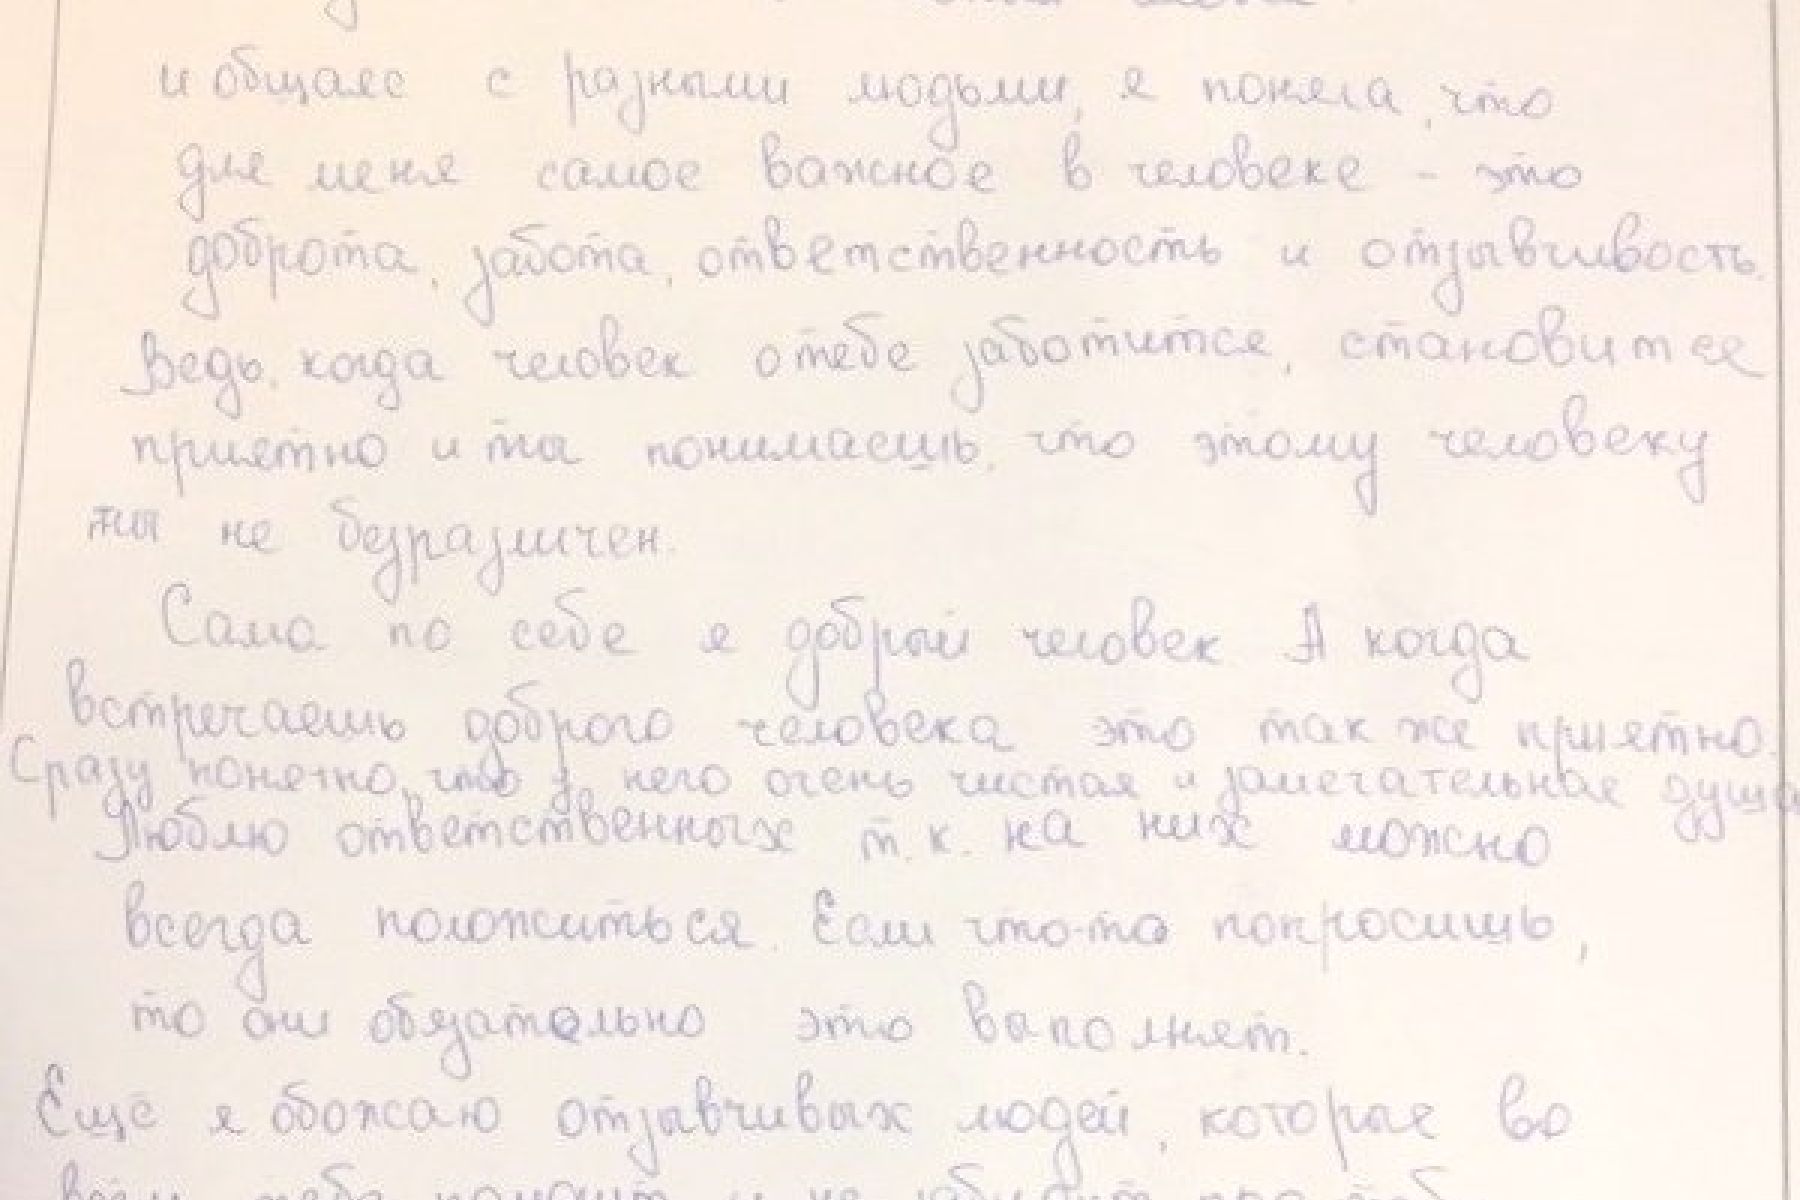 и общаяс с разными людьми, я поняла, что
для меня самое важное в человеке - это
доброта, забота, ответственность и отзывчивость.
Ведь, когда человек о тебе заботится, становится
приятно и ты понимаешь, что этому человеку
ты не безразличен.
Сама по себе я добрый человек А когда
встречаешь доброго человека это так же приятно.
Сразу понятно, что у него очень чистая и замечательная душа
Люблю ответственных т.к. на них можно
всегда положиться. Если что-то попросишь,
то они обязательно это выполнят.
Ещё я обожаю отзывчивых людей, которые во
всём тебе помогут и не